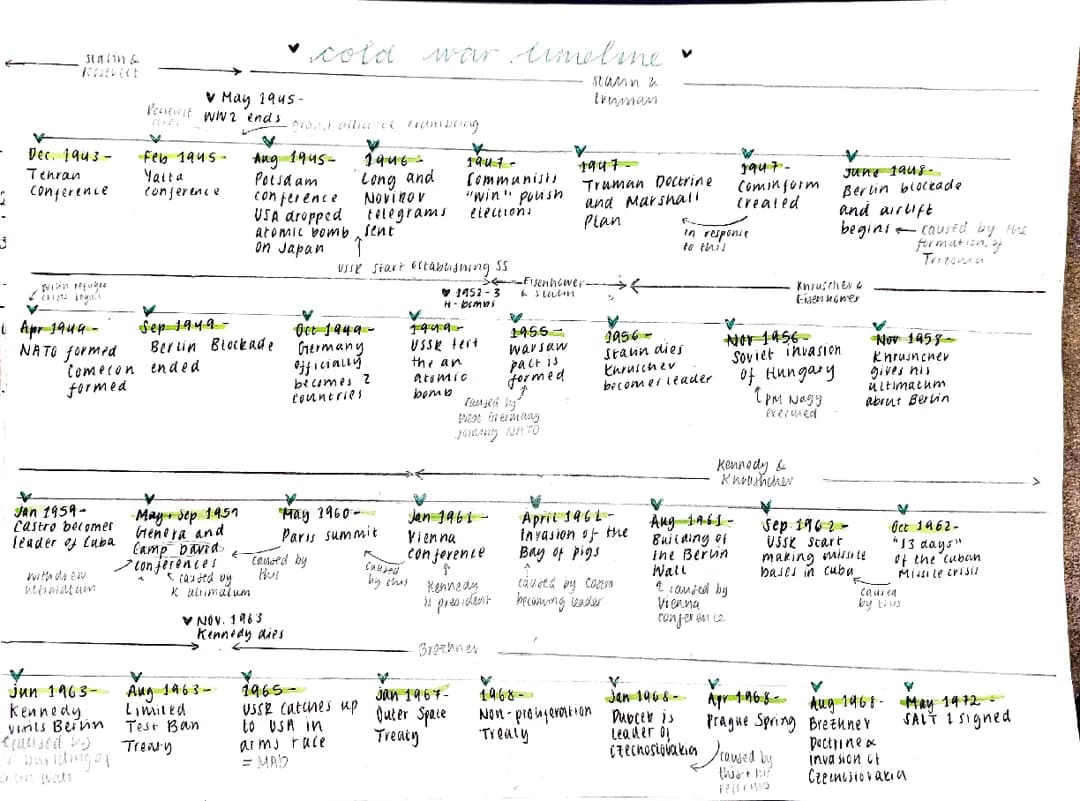 ♥ cold war timeline ♥
Stalin &
Roosevelt
Stalin &
truman
♥ May 1945-
WW2 ends
Roosevelt
dies
grand alliance crumbling
Dec. 1943-
Tehran
conference
Feb 1945-
Yalta
conference
Aug 1945-
Potsdam
conference
USA dropped
atomic bomb
on Japan
1946-
Long and
Novikov
telegrams
sent
USSR start establishing SS
1947-
Communists
"win" polish
elections
1947-
Truman Doctrine
and Marshall
Plan
1947-
Cominform
created
in response
to this
June 1948-
Berlin blockade
and airlift
begins
caused by the
formation of
Trizonia
Berlin refugee
crisis begins
♥ 1952-3
H-bombs
Eisenhower
& Stalin
Khruschev &
Eisenhower
Apr 1949-
NATO formed
Comecon
formed
Sep 1949-
Berlin Blockade
ended
Oct 1949-
Germany
officially
becomes 2
countries
1949-
USSR test
the an
atomic
bomb
1955-
Warsaw
pact is
formed
caused by
West Germany
joining NATO
1956-
Stalin dies
Khruschev
becomes leader
Nov 1956-
Soviet invasion
of Hungary
PM Nagy
executed
Nov 1958-
Khrushchev
gives his
ultimatum
about Berlin
Kennedy &
Khrushchev
Jan 1959-
Castro becomes
leader of Cuba
May + Sep 1959
Geneva and
Camp David
conferences
withdrew
ultimatum
caused by
K ultimatum
May 1960-
Paris summit
caused by
this
Jan 1961-
Vienna
conference
caused
by this
Kennedy
is president
April 1961-
Invasion of the
Bay of pigs
caused by Castro
becoming leader
Aug 1961-
Building of
the Berlin
Wall
caused by
Vienna
conference
Sep 1962-
USSR start
making missile
bases in Cuba
Oct 1962-
"13 days"
of the Cuban
Missile crisis
caused
by this
♥ NOV. 1963
Kennedy dies
Brezhnev
Jun 1963-
Kennedy
visits Berlin
caused by
building of
Berlin Wall
Aug 1963-
Limited
Test Ban
Treaty
1965-
USSR catches up
to USA in
arms race
= MAD
Jan 1967-
Outer Space
Treaty
1968-
Non-proliferation
Treaty
Jan 1968-
Dubcek is
leader of
Czechoslovakia
Apr 1968-
Prague Spring
caused by
this + his
reforms
Aug 1968-
Brezhnev
Doctrine &
invasion of
Czechoslovakia
May 1972-
SALT 1 signed